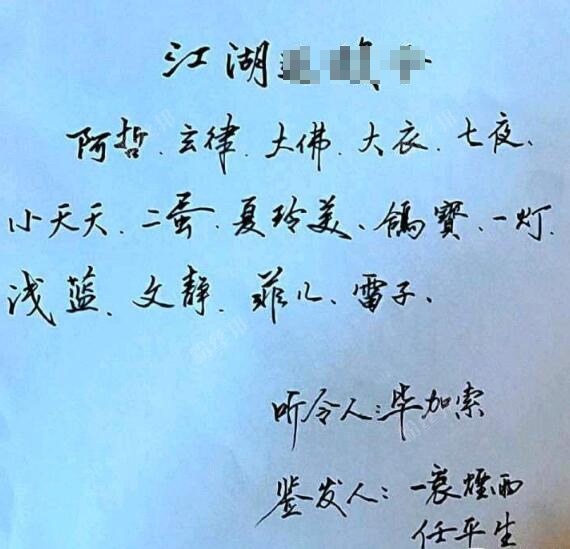 江湖
阿哲、玄律、大佛、大衣、七夜、
小天天、二蛋、夏玲美、鸽寳、一灯、
浅蓝、文静、菲儿、雷子、
听令人：毕加索
鉴发人：一蓑烟雨
任平生